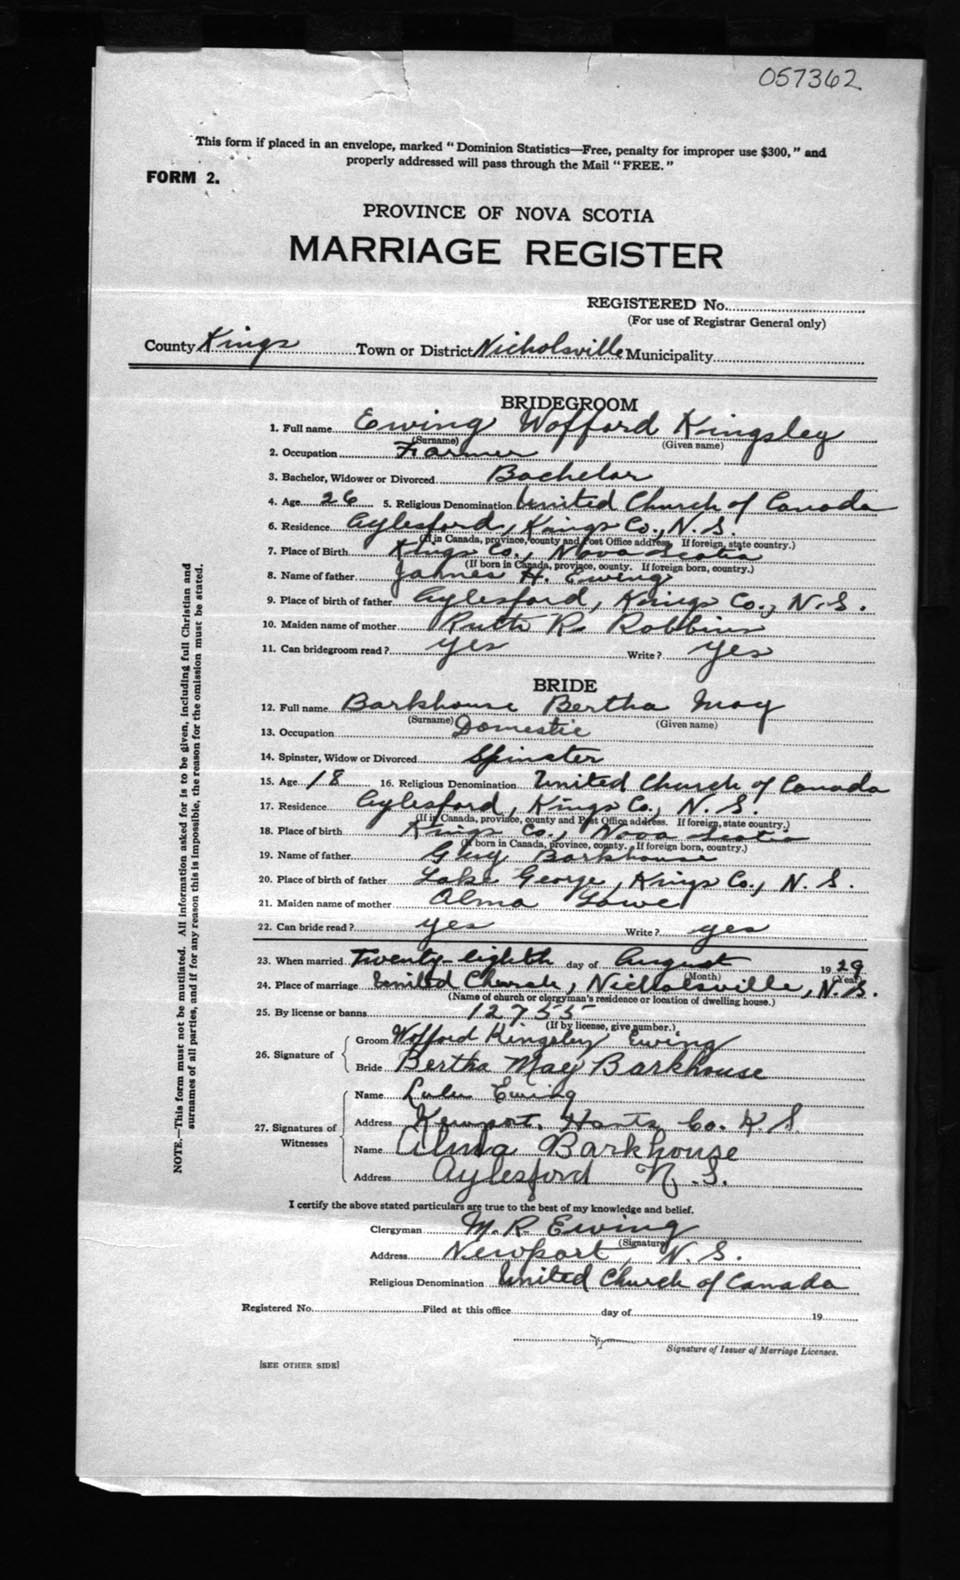 057362
This form if placed in an envelope, marked "Dominion Statistics—Free, penalty for improper use $300," and
properly addressed will pass through the Mail "FREE."
FORM 2.
PROVINCE OF NOVA SCOTIA
MARRIAGE REGISTER
REGISTERED No.
(For use of Registrar General only)
County Kings Town or District Nicholsville Municipality
BRIDEGROOM
1. Full name Ewing Wofford Kingsley
(Surname) (Given name)
2. Occupation Farmer
3. Bachelor, Widower or Divorced Bachelor
4. Age 26 5. Religious Denomination United Church of Canada
6. Residence Aylesford, Kings Co., N.S.
(If in Canada, province, county and Post Office address. If foreign, state country.)
7. Place of Birth Kings Co., Nova Scotia
(If born in Canada, province, county. If foreign born, country.)
8. Name of father James H. Ewing
9. Place of birth of father Aylesford, Kings Co., N.S.
10. Maiden name of mother Ruth R. Robbins
11. Can bridegroom read? yes Write? yes
BRIDE
12. Full name Barkhouse Bertha May
(Surname) (Given name)
13. Occupation Domestic
14. Spinster, Widow or Divorced Spinster
15. Age 18 16. Religious Denomination United Church of Canada
17. Residence Aylesford, Kings Co., N.S.
(If in Canada, province, county and Post Office address. If foreign, state country.)
18. Place of birth Kings Co., Nova Scotia
(If born in Canada, province, county. If foreign born, country.)
19. Name of father Barkhouse
20. Place of birth of father Lake George, Kings Co., N.S.
21. Maiden name of mother Alma Lowe
22. Can bride read? yes Write? yes
23. When married Twenty-eighth day of August 1929
(Month) (Year)
24. Place of marriage United Church, Nicholsville, N.S.
(Name of church or clergyman's residence or location of dwelling house.)
25. By license or banns 12755
(If by license, give number.)
26. Signature of
Groom Wofford Kingsley Ewing
Bride Bertha May Barkhouse
27. Signatures of Witnesses
Name Lulu Ewing
Address Newport, Hants Co. N.S.
Name Alma Barkhouse
Address Aylesford N.S.
I certify the above stated particulars are true to the best of my knowledge and belief.
Clergyman M. R. Ewing
(Signature)
Address Newport, N.S.
Religious Denomination United Church of Canada
Registered No. Filed at this office day of 19
Signature of Issuer of Marriage Licenses.
[SEE OTHER SIDE]
NOTE.—This form must not be mutilated. All information asked for is to be given, including full Christian and
surnames of all parties, and if for any reason this is impossible, the reason for the omission must be stated.